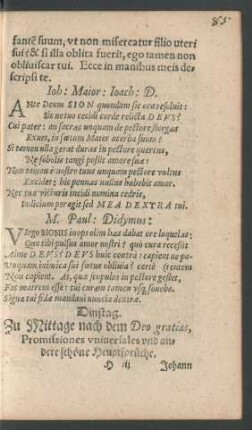 85
fantē suum, vt non misereatur filio uteri
sui? & si illa oblita fuerit, ego tamen non
obliuiscar tui. Ecce in manibus meis de-
scripsi te.
Ioh: Maior: Ioach: D.
ANte Deum SION quondam sic ora resoluit:
Et neruo cecidi corde relicta DEVS?
Cui pater: an sacras unquam de pectore stirges
Exuet, in fœtum Mater acerba suum?
Si tamen ulla gerat duras in pectore quercus,
Ne sobolis tangi possit amore suæ:
Non tamen è nostro tuus unquam pectore vultus
Excidet: hic pennas nullus habebit amor.
Nec tua victuris incidi nomina cedris,
Iudicium peragit sed MEA DEXTRA tui.
M. Paul: Didymus:
VIrgo SIONIS inops olim has dabat ore loquelas:
Quo tibi fugit amor nostri? quò cura recessit
Aime DEVS? DEVS huic contrà: capient an
Vnquam iniuica sui fœtus obliuia? certè
Non capient. At, quæ scopulos in pectore gestet,
Foc matrem esse: tui curam tamen vsq̃ fouebo.
Signa tui fidæ mandaui nuncia dextræ.
Dinstag.
Zu Mittage nach dem Deo gratias,
Promissiones vniuersales vnd an-
dere schöne Heuptsprüche.
H iij Johann